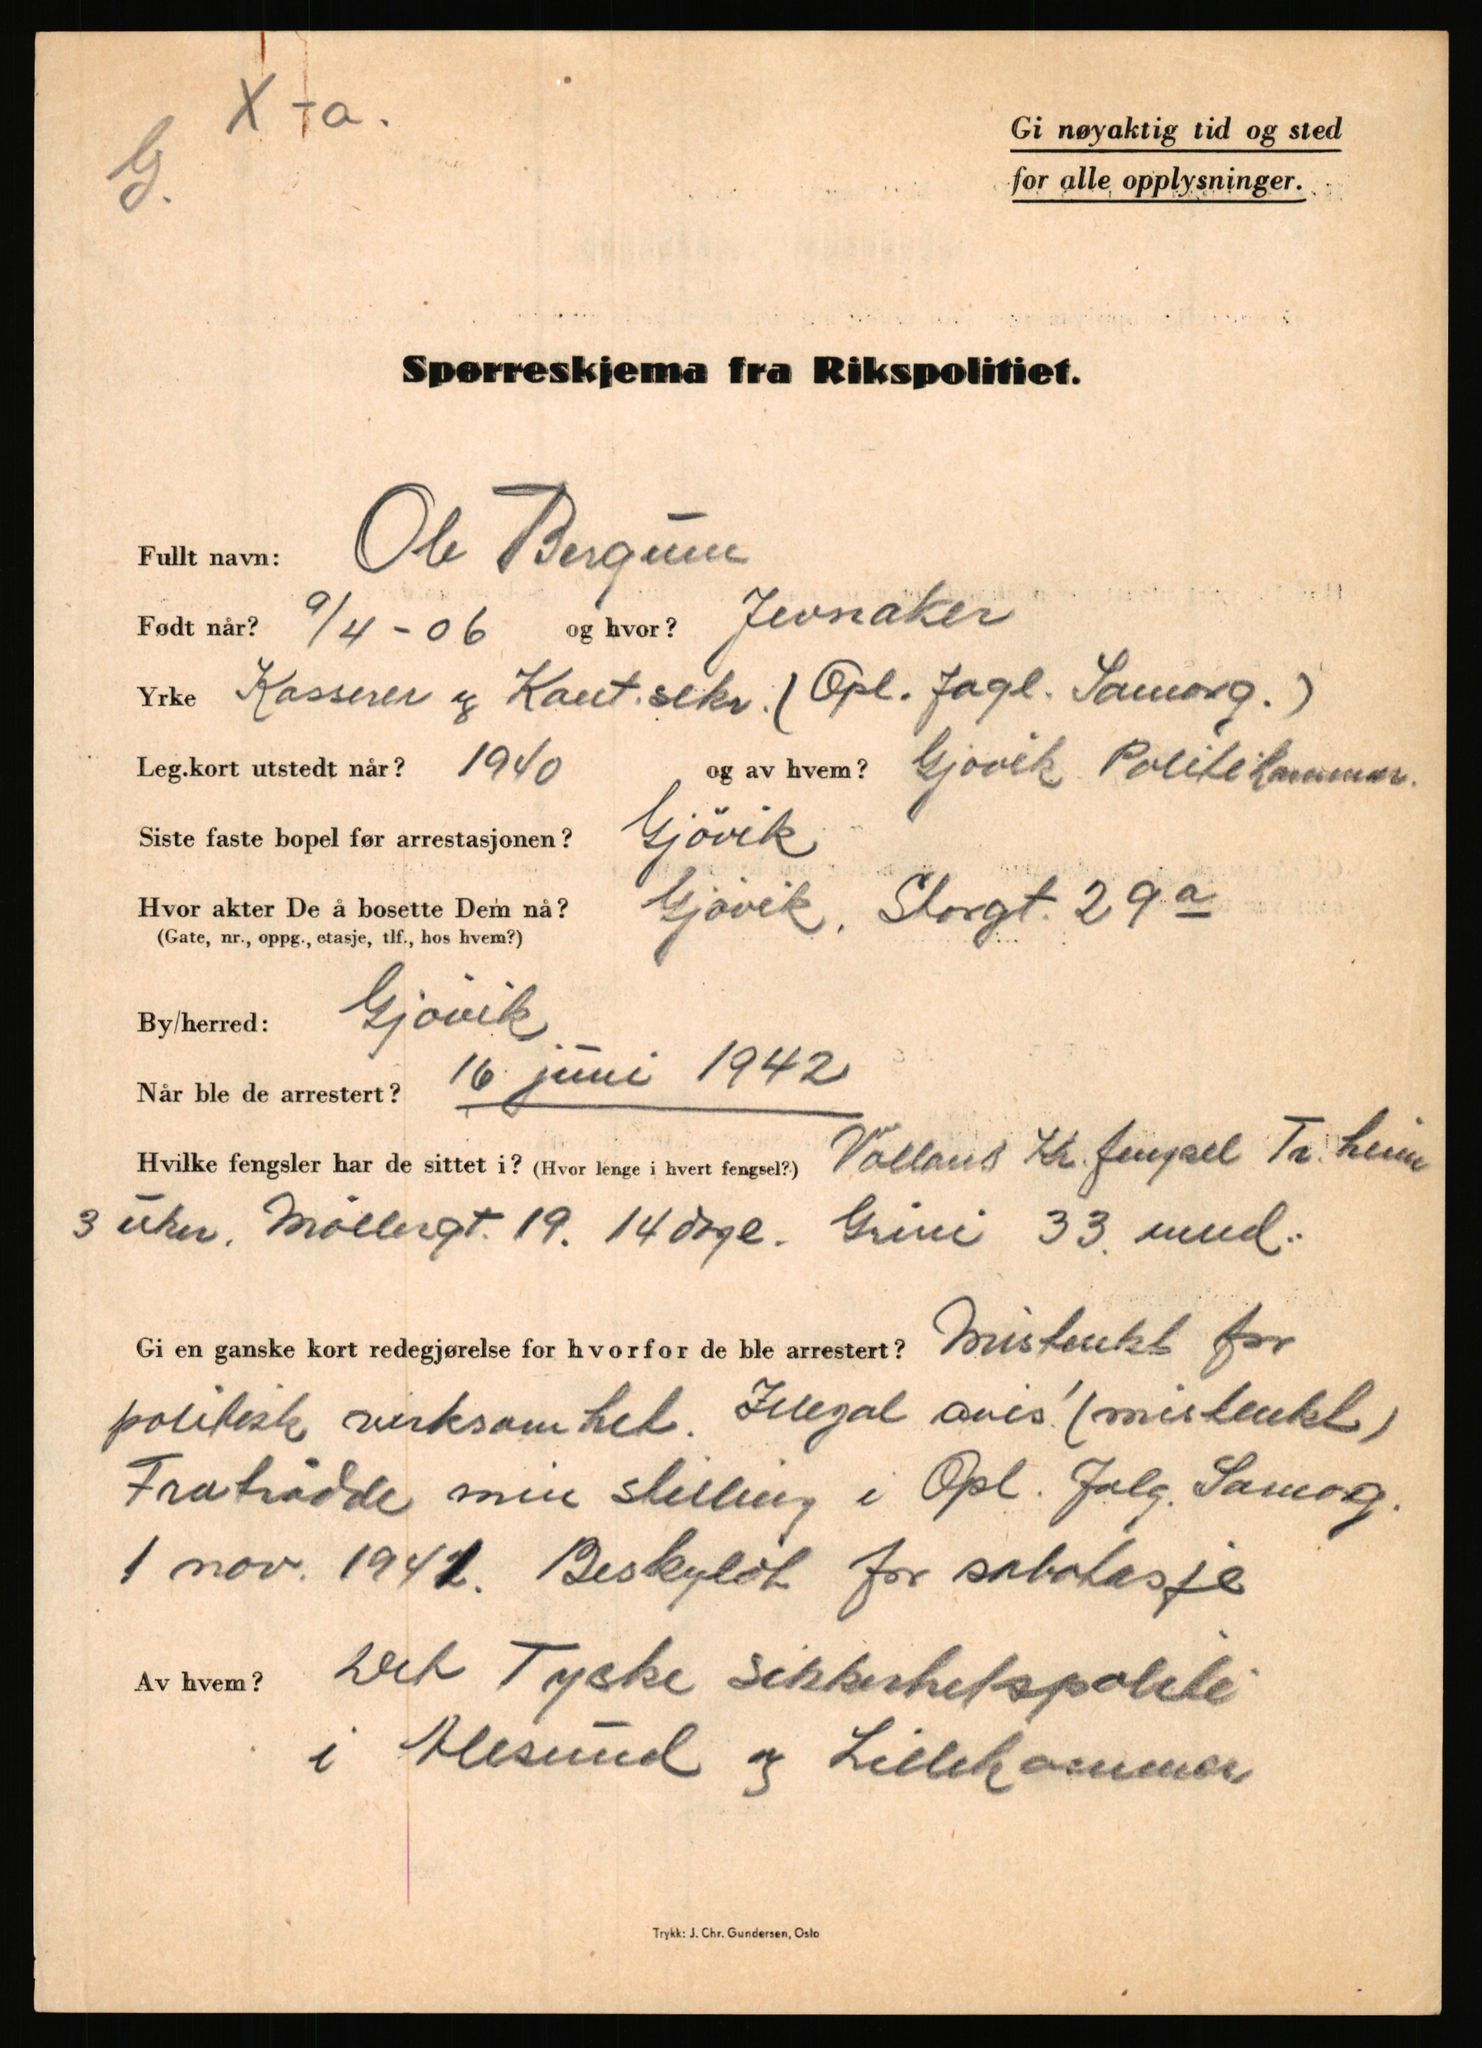 X-a.
G.
Gi nøyaktig tid og sted
for alle opplysninger.
Spørreskjema fra Rikspolitiet.
Fullt navn: Ole Bergum
Født når? 9/4-06 og hvor? Jevnaker
Yrke Kasserer og Kont.sekr. (Opl. fagl. Samorg.)
Leg.kort utstedt når? 1940 og av hvem? Gjøvik Politikammer.
Siste faste bopel før arrestasjonen? Gjövik
Hvor akter De å bosette Dem nå? Gjövik, Storgt. 29a
(Gate, nr., oppg., etasje, tlf., hos hvem?)
By/herred: Gjövik
Når ble de arrestert? 16 juni 1942
Hvilke fengsler har de sittet i? (Hvor lenge i hvert fengsel?) Vollans Kr. fengsel Tr.heim
3 uker. Möllergt. 19. 14 dage. Grini 33. mnd..
Gi en ganske kort redegjørelse for hvorfor de ble arrestert? Mistenkt for
politisk virksomhet. Illegal avis! (mistenkt)
Fratrådde min stilling i Opl. Falg. Samorg.
1 nov. 1941. Beskyldt for sabotasje
Av hvem? Det Tyske sikkerhetspoliti
i Ålesund og Lillehammer
Trykk: J. Chr. Gundersen, Oslo